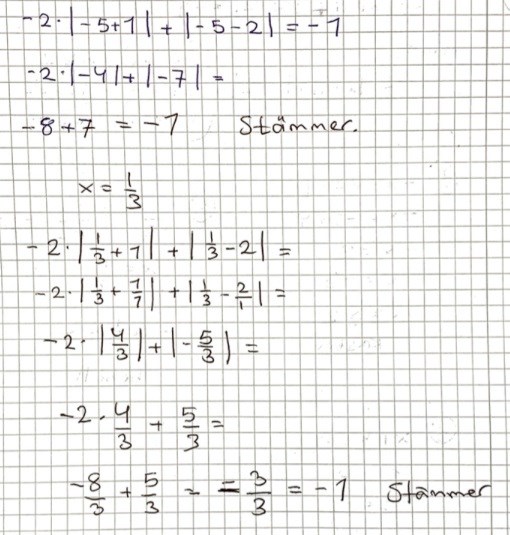 -2·|-5+1|+|-5-2|=-1
-2·|-4|+|-7|=
-8+7 = -1 Stämmer.
x = 1/3
-2·|1/3+1|+|1/3-2|=
-2·|1/3+1/1|+|1/3-2/1|=
-2·|4/3|+|-5/3|=
-2·4/3+5/3=
-8/3+5/3=-3/3=-1 Stämmer